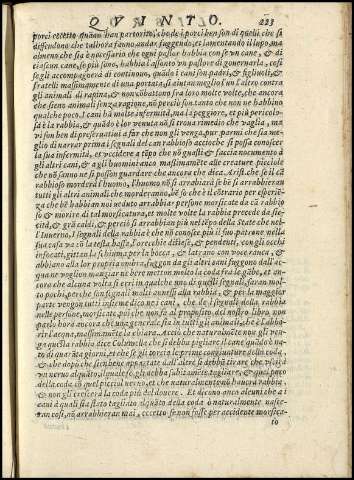 QVINTO. 223
porci eccetto quãdo han partorito, che de i porci ben son di quelli, che si
diffendono che talhora fanno andar fuggendo, et lamentando il lupo, ma
almeno che sia è necessario che ogni pastor habbia con se un cane, & di
ciascun cane, se più sono, habbia l'assonto un pastor di gouernarlo, cosi
se gli accompagnerà di continouo, quãdo i cani son padri, & figliuoli, &
fratelli massimamente di una portata, si aiutan meglio l'un l'altro contra
gli animali di rapina, & non cõbatton fra loro molte volte, che ancora
che sieno animali senza ragione, nõ perciò son tanto che non ne habbino
qualche poco. I cani hã molte infermità, ma i peggiore, et più pericolo-
sa è la rabbia, & quãdo è lor venuta nõ si troua rimedio che vaglia, ma
vi son ben di preseruatiui a far che non gli venga, pur parmi che sia me-
glio di narrar prima i segnali del can rabbioso accioche si possa conoscer
la sua infermità, et vccidere a tẽpo che nõ guaste & faccia nocumento à
gli altri cani, & a gli huomini anco massimamẽte alle creature picciole
che nõ sanno ne si posson guardare che ancora che dica, Arist. che se il cã
rabbioso morderà l'huomo, l'huomo nõ si arrabbierà se bẽ si arrabbieran
tutti gli altri animali che morderanno, nõ so che è il cõtrario per esperiẽ-
za che bẽ habbian noi veduto arrabbiar persone morsicate da cã rabbio
so & morire di tal morsicatura, et molte volte la rabbia precede da sic-
cità, & grã caldi, & perciò si arrabbian più nel tẽpo della State che nel-
l'Inuerno, I segnali della rabbia è che nõ conosce più il suo patrone nella
sua casa và cõ la testa bassa, l'orecchie distese, & pendenti, con gli occhi
infocati, gittan la schiuma per la bocca, & latrano con voce rauca, &
abbaiano alla lor propria ombra, fuggon da gli altri cani fuggon dall'ac-
qua ne voglion mangiar ne bere metton molto la coda fra le gãbe, et an-
cora che alcuna volta si erri in qualche uno di questi segnali, saran mol-
to pochi, perche son segnali molto annessi alla rabbia, & per la maggior
parte vengon tutti insieme à essi ne i cani, che de i segnali della rabbia
nelle persone, morsicate, poi che non fa al proposito del nostro libro, non
parlo hora ancora che una generale sia in tutti gli animali, che è l'abbor-
rir l'acqua, massimamẽte la chiara. Accio che naturalmẽte non gli ven
ga questa rabbia dice Colamella che si debba pigliare il cane quãdo è na-
to di quarãta giorni, et che se gli torcia le prime congiunture della coda,
& che dopò che sien bene appartate dall'altre si debbã tirare che vscirà
un neruo alquãto lungo
poco
della coda cõ quel picciol neruo, et che naturalmentenõ haurà rabbia
& non gli crescerà la coda più del douere. Et dicono anco alcuni che a i
cani à quali sia stato tagliato alquãto della coda ò naturalmente nasce-
ran cosi, nõ arrabbieran mai, eccetto se non fusse per accidente morsica-
to